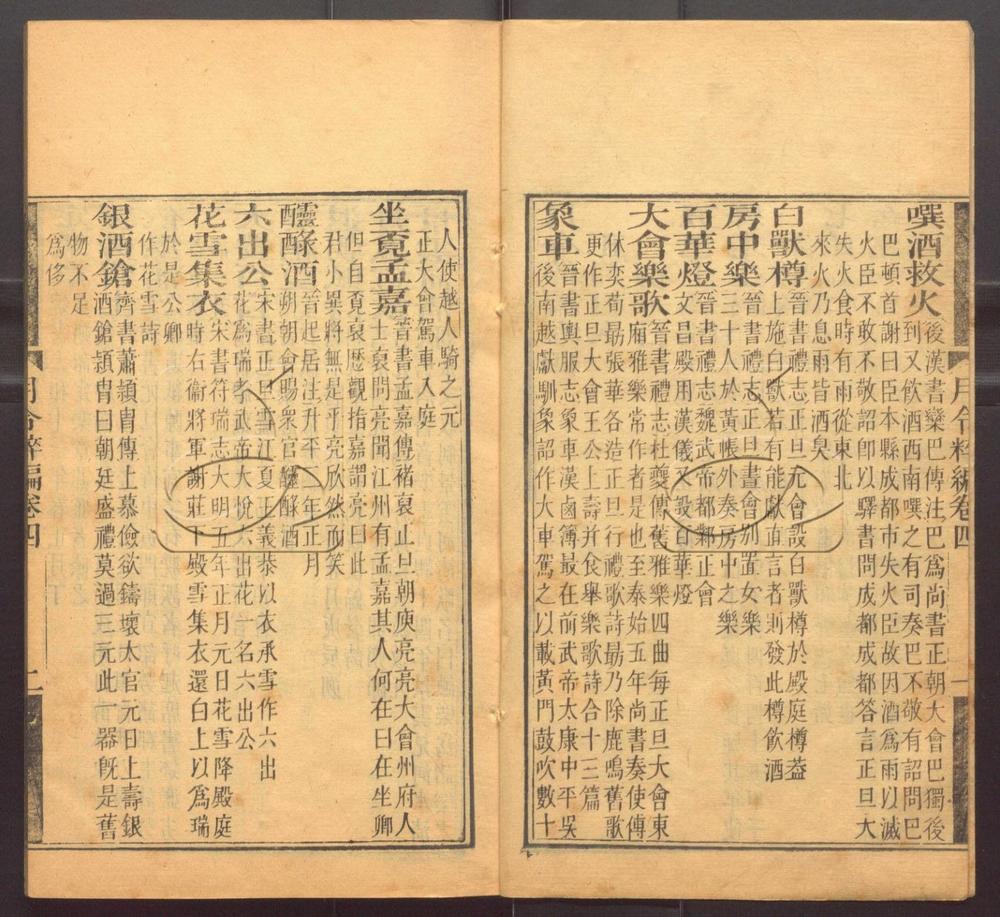 月令粹編卷四
噀酒救火後漢書欒巴傳注巴爲尚書正朝大會巴獨後
到又飮酒西南噀之有司奏巴不敬有詔問巴
巴頓首謝曰臣本縣成都市失火臣故因酒爲雨以滅
火臣不敢不敬詔卽以驛書問成都成都答言正旦大
失火食時有雨從東北
來火乃息雨皆酒臭
白獸樽晉書禮志正旦元會設白獸樽於殿庭樽葢
上施白獸若有能獻直言者則發此樽飮酒
房中樂晉書禮志正旦晝會別置女樂
三十人於黃帳外奏房中之樂
百華燈晉書禮志魏武帝都鄴正會
文昌殿用漢儀又設百華燈
大會樂歌晉書禮志杜夔傳舊雅樂四曲每正旦大會東
廂雅樂常作者是也至泰始五年尚書奏使傅
休奕荀勗張華各造正旦行禮歌詩勗乃除鹿鳴舊歌
更作正旦大會王公上壽并食舉樂歌詩合十三篇
象車晉書輿服志象車漢鹵簿最在前武帝太康中平吳
後南越獻馴象詔作大車駕之以載黃門鼓吹數十
人使越人騎之元
正大會駕車入庭
坐覔孟嘉晉書孟嘉傳褚裒正旦朝庾亮亮大會州府人
士裒問亮聞江州有孟嘉其人何在曰在坐卿
但自覔裒歷觀指嘉謂亮曰此
君小異將無是乎亮欣然而笑
醽醁酒晉起居注升平二年正月
朔朝會賜衆官醽醁酒
六出公宋書正旦雪江夏王義恭以衣承雪作六出
花爲瑞孝武帝大悅六出花一名六出公
花雪集衣宋書符瑞志大明五年正月元日花雪降殿庭
時右衞將軍謝莊下殿雪集衣還白上以爲瑞
於是公卿
作花雪詩
銀酒鎗齊書蕭頴冑傳上慕儉欲鑄壞太官元日上壽銀
酒鎗頴冑曰朝廷盛禮莫過三元此一器旣是舊
物不足
爲侈
月令粹編卷四
二